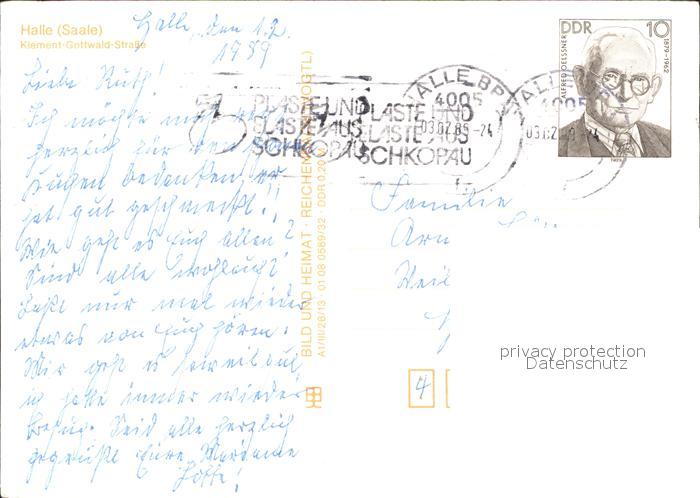 Halle (Saale)
Klement-Gottwald-Straße
Halle, den 1.2.
1989
Liebe Ruth!
Ich möchte mich
herzlich für den
bedanken, er
hat gut geschmeckt!!
Wie geht es Euch allen?
Sind alle wohlauf?
Laßt nur mal wieder
etwas von Euch hören.
Wir geht es soweit
in immer wieder
Seid alle herzlich
gegrüßt Eure Marianne
Lotte!
BILD UND HEIMAT · REICHENBACH (VOGTL)
A1/III/26/13 01 08 0589/32 · DDR 0,20
PLASTE UND
ELASTE AUS
SCHKOPAU
PLASTE UND
ELASTE AUS
SCHKOPAU
HALLE BPA
4005
03.02.89-24
HALLE
4005
DDR 10
ALFRED OESSNER
1879-1962
1989
Familie
Arn
Weil
4
privacy protection
Datenschutz